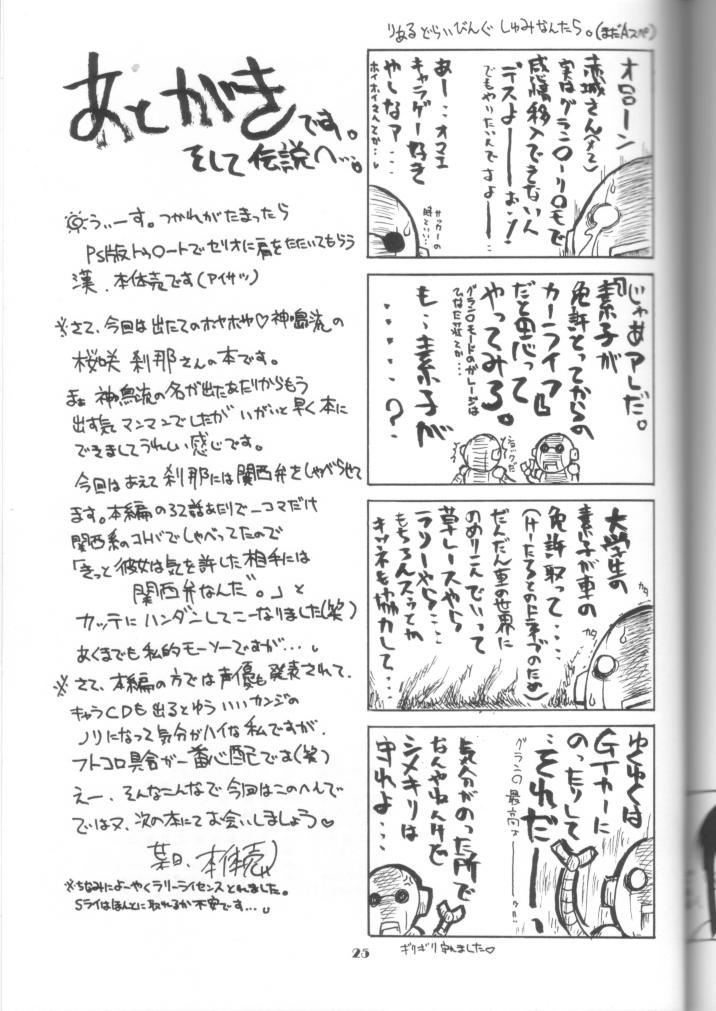 りあるどらいびんぐ しゅみなんたら。(まだAスペ)
あとがきです。
そして伝説へ…。
うぃーす。つかれがたまったら
PS版トゥ○ートでセリオに肩をたたいてもらう
漢、本体売です(アイサツ)
※さて、今回は出たてのホヤホヤ♡神鳴流の
桜咲 刹那さんの本です。
まぁ 神鳴流の名が出たあたりからもう
出す気マンマンでしたが いがいと早く本に
できましてうれしい感じです。
今回はあえて刹那には関西弁をしゃべらせて
ます。本編の37話あたりで一コマだけ
関西系のコトバでしゃべってたので
「きっと彼女は気を許した相手には
関西弁なんだ。」と
カッテにハンダンしてこーなりました(笑)
あくまでも私的モーソーですが…。
※さて、本編の方では声優も発表されて、
キャラCDも出るとゆういいカンジの
ノリになって気分がハイな私ですが、
フトコロ具合が一番心配です(笑)
えー、そんなこんなで今回はこのへんで
ではまた、次の本にてお会いしましょう♡
本体売
※ちなみによーやくラリーライセンスとれました。
Sライはほんとに取れるか不安です…。
オローン
赤城さん(メ2)
実はグラン○ーリ○モで
感情移入できない人
デスよーーおっ!
でもやりたいんですよーー
あー…オマエ
キャラゲー好き
やしなァ…
ホイホイさんてか…。
サッカーの
時といい…
「じゃあアレだ。
素子が
免許とってからの
カーライフ」
だと思って
やってみろ。
グラン○モードのガレージは
ひなた荘でか…
も、素子が
・・・・・?
ショックだ
大学生の
素子が車の
免許取って…
(けーたろとのドライブのため)
だんだん車の世界に
のめりこんでいって
草レースやら
ラリーやら…
もちろんスゥとか
キツネも協力して…
カタ
カタ
ゆくゆくは
GTカーに
のったりして
…それだーーっ
グラン○最高ォーー!!
気分がのった所で
なんやねんけど
シメキリは
守れよ…
ギリギリ守れました♡
25